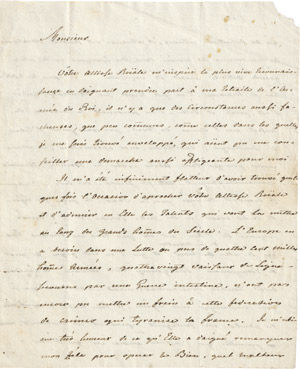 Monsieur
Votre Altesse Roïale m'inspire la plus vive reconnais-
sance en daignant prendre part à ma Retraite de l'Ar-
mée du Roi, il n'y a que des circonstances aussi fa-
cheuses, que peu communes, come celles dans lesquelles
je me suis trouvé enveloppé, qui aïent pu me con-
seiller une demarche aussi affligeante pour moi
Il m'a été infiniment flatteur d'avoir trouvé quel-
que fois l'occasion d'aprocher Votre Altesse Roiale
et d'admirer en Elle les Talents qui vont la mettre
au rang des grands hômes du Siecle. L'Europe en
a besoin dans une Lutte ou plus de quatre cent mille
hômes Armés, quatrevingt vaisseaux de Ligne
une Guerre intestine, n'ont pas
encor pu mettre un frein à cette federation
de crimes qui tyranise la france. Je m'estime
tres heureux de ce qu'Elle a daigné remarquer
mon Zele pour operer le Bien, quel malheur